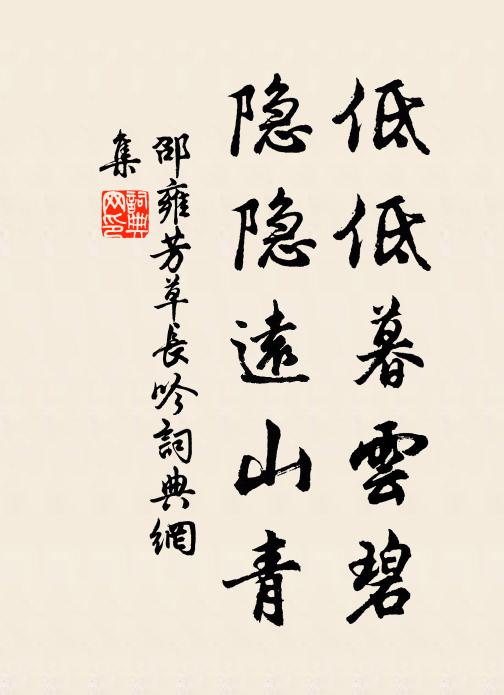 低低暮雲碧
隐隐遠山青
邵雍芳草長吟詞典網
集
詞典网印